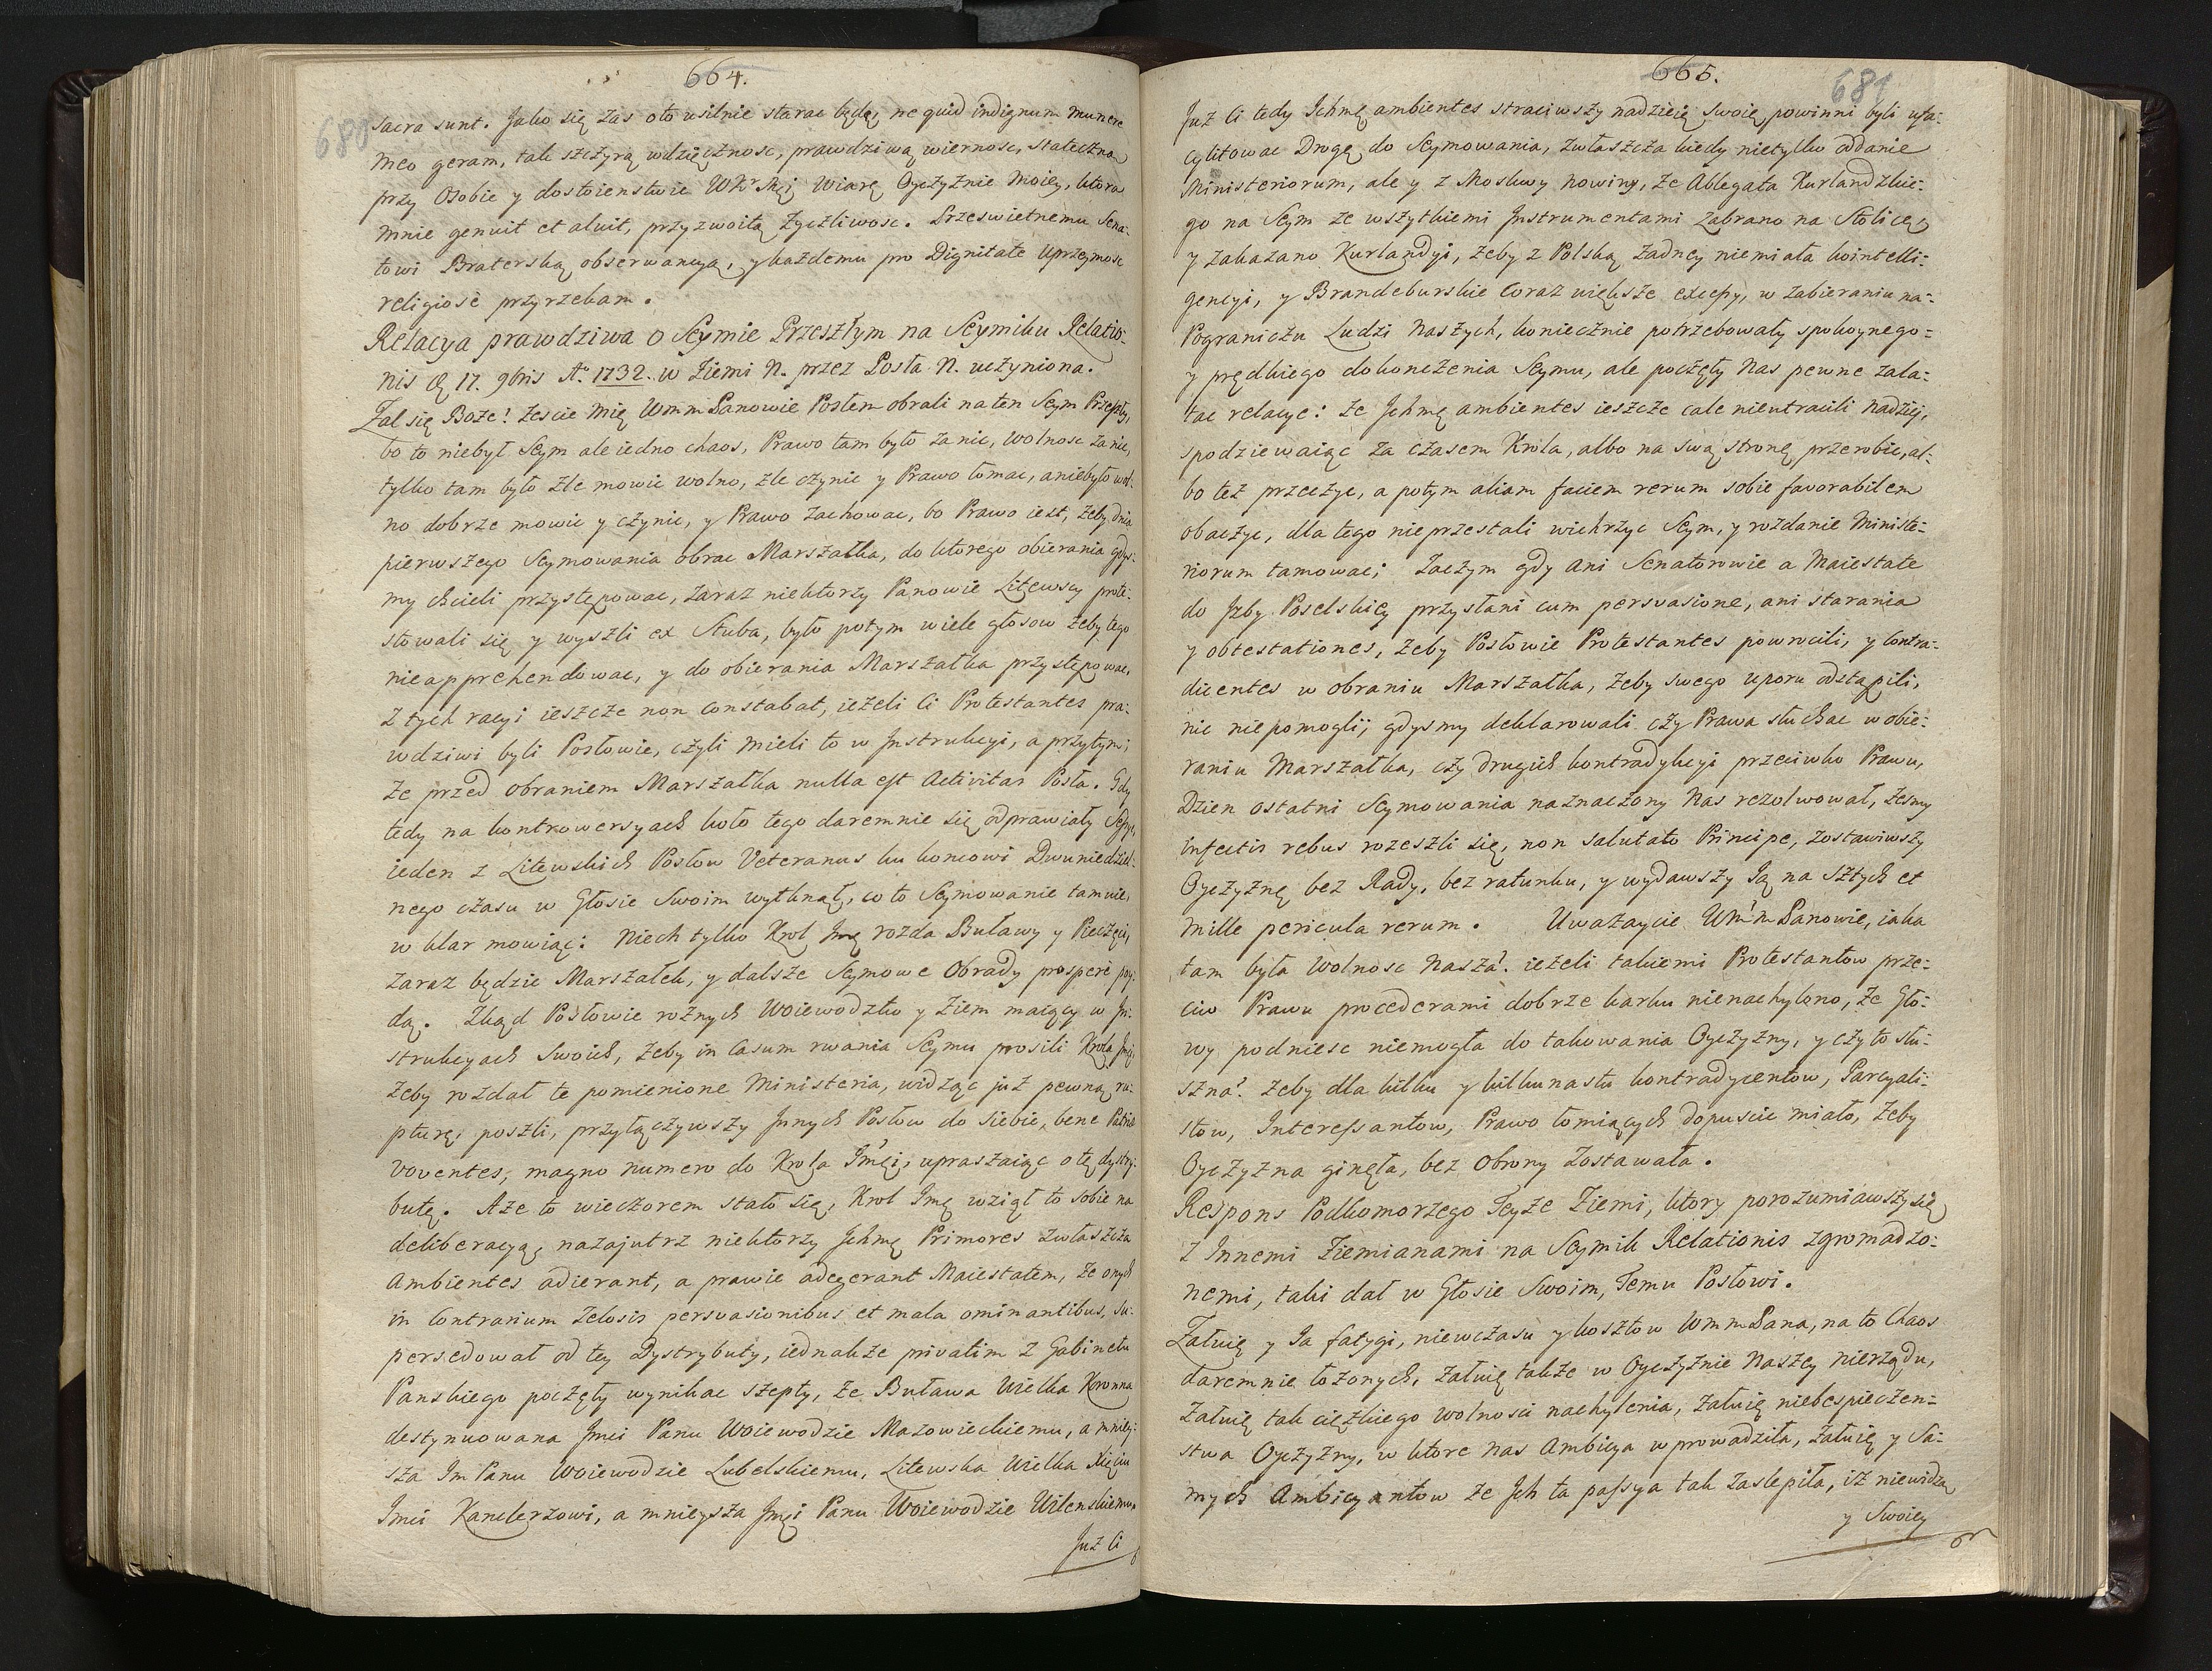 664.
680
sacra sunt. Jako się zas oto usilnie starac będę, ne quid indignum munere
meo geram, tak szczyrą wdzięcznosc, prawdziwą wiernosc, stateczną
przy Osobie y dostoienstwie WKrMći wiarę Oyczyznie moiey, ktora
mnie genuit et aluit, przyzwoitą zyczliwosc. Przeswietnemu Sena-
towi Braterską obserwancyą, y kazdemu pro Dignitate uprzeymosc
religiose przyrzekam.
Relacya prawdziwa o Seymie Przeszłym na Seymiku Relatio-
nis d. 17. 9bris Ao. 1732. w Ziemi N. przez Posła N. uczyniona.
Zal się Boze! zescie mię WmmPanowie Posłem obrali na ten Seym Przeszły,
bo to niebył Seym ale iedno chaos, Prawo tam było za nic, wolnosc za nic,
tylko tam było zle mowic wolno, zle czynic y Prawo łomac, a niebyło wol-
no dobrze mowic y czynic, y Prawo zachowac, bo Prawo iest, zeby dnia
pierwszego Seymowania obrac Marszałka, do ktorego obierania gdys-
my chcieli przystępowac, zaraz niektorzy Panowie Litewscy prote-
stowali się y wyszli ex Stuba, było potym wiele głosow zeby tego
nieapprehendowac, y do obierania Marszałka przystępowac,
z tych racyi ieszcze non constabat, iezeli ci Protestantes pra-
wdziwi byli Posłowie, czyli mieli to w Instrukcyi, a przytym;
ze przed obraniem Marszałka nulla est Activitas Posła. Gdy
tedy na kontrowersyach koło tego daremnie się odprawiały Sessye,
ieden z Litewskich Posłow Veteranus ku koncowi Dwuniedziel-
nego czasu w Głosie Swoim wytknął, co to Seymowanie tamuie,
w klar mowiąc: Niech tylko Krol Jmć rozda Buławy y Pieczęci,
zaraz będzie Marszałek, y dalsze Seymowe Obrady prospere poy-
dą. Zkąd Posłowie roznych Woiewodztw y Ziem maiący w In-
strukcyach Swoich, zeby in Casum rwania Seymu prosili Krola Jmći,
zeby rozdał te pomienione Ministeria, widząc juz pewną ru-
pturę, poszli, przyłączywszy Innych Posłow do siebie, bene Patriæ
voventes, magno numero do Krola Jmći, upraszaiąc o tę dystry-
butę. Aze to wieczorem stało się, Krol Jmć wziął to sobie na
deliberacyą, nazajutrz niektorzy Jchmć Primores zwłaszcza
Ambientes adierant, a prawie adegerant Maiestatem, ze onych
in Contrarium zelosis persvasionibus et mala ominantibus, su-
persedował od tey Dystrybuty, iednakze privatim z Gabinetu
Panskiego poczęły wynikac szepty, ze Buława Wielka Koronna
destynuowana Jmci Panu Woiewodzie Mazowieckiemu, a mniey-
sza Jm Panu Woiewodzie Lubelskiemu, Litewska Wielka Xięciu
Jmci Kanclerzowi, a mnieysza Jmći Panu Woiewodzie Wilenskiemu.
Juz Ci
665.
681
Juz Ci tedy Jchmć ambientes straciwszy nadzieię Swoię, powinni byli ufa-
cylitowac Drogę do Seymowania, zwłaszcza kiedy nietylko oddanie
Ministeriorum, ale y z Moskwy nowiny, ze Ablegata Kurlandzkie-
go na Seym ze wszytkiemi Instrumentami zabrano na Stolicę,
y zakazano Kurlandyi, zeby z Polską zadney niemiała kointelli-
gencyi, y Brandeburskie coraz większe excessy, w zabieraniu na-
Pograniczu Ludzi Naszych, koniecznie potrzebowały spokoynego-
y prędkiego dokonczenia Seymu, ale poczęły Nas pewne zala-
tac relacye: ze Jchmć ambientes ieszcze cale nieutracili nadziei,
spodziewaiąc za czasem Krola, albo na swą stronę przerobic, al-
bo tez przezyc, a potym aliam faciem rerum sobie favorabilem
obaczyc, dla tego nieprzestali wichrzyc Seym, y rozdanie Ministe-
riorum tamowac; zaczym gdy ani Senatorowie a Maiestate
do Izby Poselskiey przysłani cum persvasione, ani starania
y obtestationes, zeby Posłowie Protestantes powrocili, y Contra-
dicentes w obraniu Marszałka, zeby swego uporu odstąpili,
nic niepomogli; gdysmy deklarowali czy Prawa słuchac w obie-
raniu Marszałka, czy drugich kontradykcyi przeciwko Prawu,
Dzien ostatni Seymowania naznaczony Nas rezolwował, zesmy
infectis rebus rozeszli się, non salutato Principe, zostawiwszy
Oyczyznę bez Rady, bez ratunku, y wydawszy Ią na Sztych et
mille pericula rerum. Uwazaycie WmmPanowie, iaka
tam była Wolnosc Nasza? iezeli takiemi Protestantow prze-
ciw Prawu procederami dobrze karku nienachylono, ze Gło-
wy podniesc niemogła do ratowania Oyczyzny, y czy to słu-
szna? zeby dla kilku y kilkunastu kontradycentow, Parcyali-
stow, Interessantow, Prawo łomiących dopuscic miało, zeby
Oyczyzna ginęła, bez Obrony zostawała.
Respons Podkomorzego Teyze Ziemi, ktory porozumiawszy się
z Innemi Ziemianami na Seymik Relationis zgromadzo-
nemi, taki dał w Głosie Swoim, Temu Posłowi.
Załuię y Ia fatygi, niewczasu y kosztow WmmPana, na to Chaos
daremnie łozonych, załuię takze w Oyczyznie Naszey nierządu,
załuię tak cięzkiego wolnosci nachylenia, załuię niebespieczen-
stwa Oyczyzny, w ktore nas Ambicya wprowadziła, załuię y Sa-
mych Ambicyantow ze Ich ta passya tak zaslepiła, iz niewidzą
y Swoiey